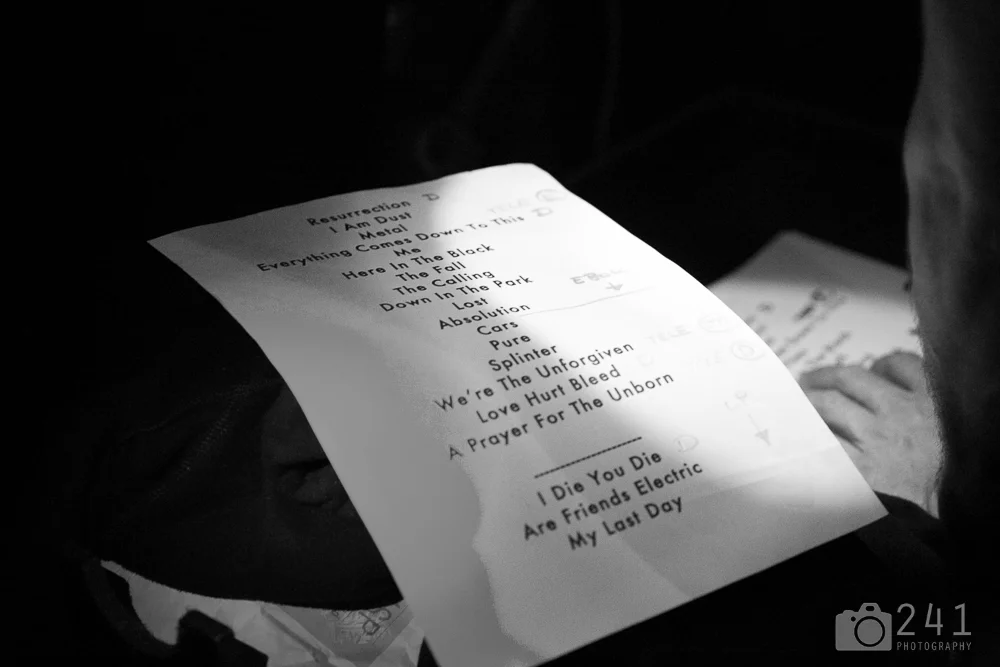 Resurrection D
I Am Dust
Metal
Everything Comes Down To This D
Me
Here In The Black
The Fall
The Calling
Down In The Park
Lost
Absolution
Cars
Pure
Splinter
We're The Unforgiven
Love Hurt Bleed
A Prayer For The Unborn
I Die You Die D
Are Friends Electric
My Last Day
241
PHOTOGRAPHY